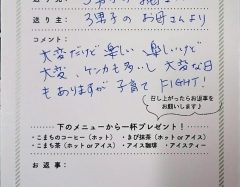 送り主： 3男子の お母さんより
コメント：
大変だけど 楽しい 楽しいけど
大変、ケンカも多いし 大変な日
もありますが 子育て FIGHT!
召し上がったらお返事を
お願いします！
下のメニューから一杯プレゼント！
・こまちのコーヒー（ホット） ・きび抹茶（ホット or アイス）
・こまち茶（ホット or アイス） ・アイス珈琲 ・アイスティー
お返事：